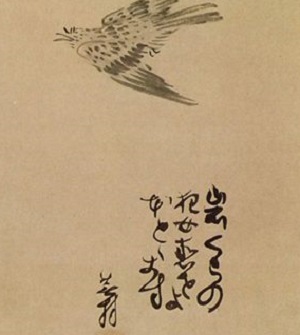 岩くらの
狂女恋せよ
ほとゝぎす
蕪村